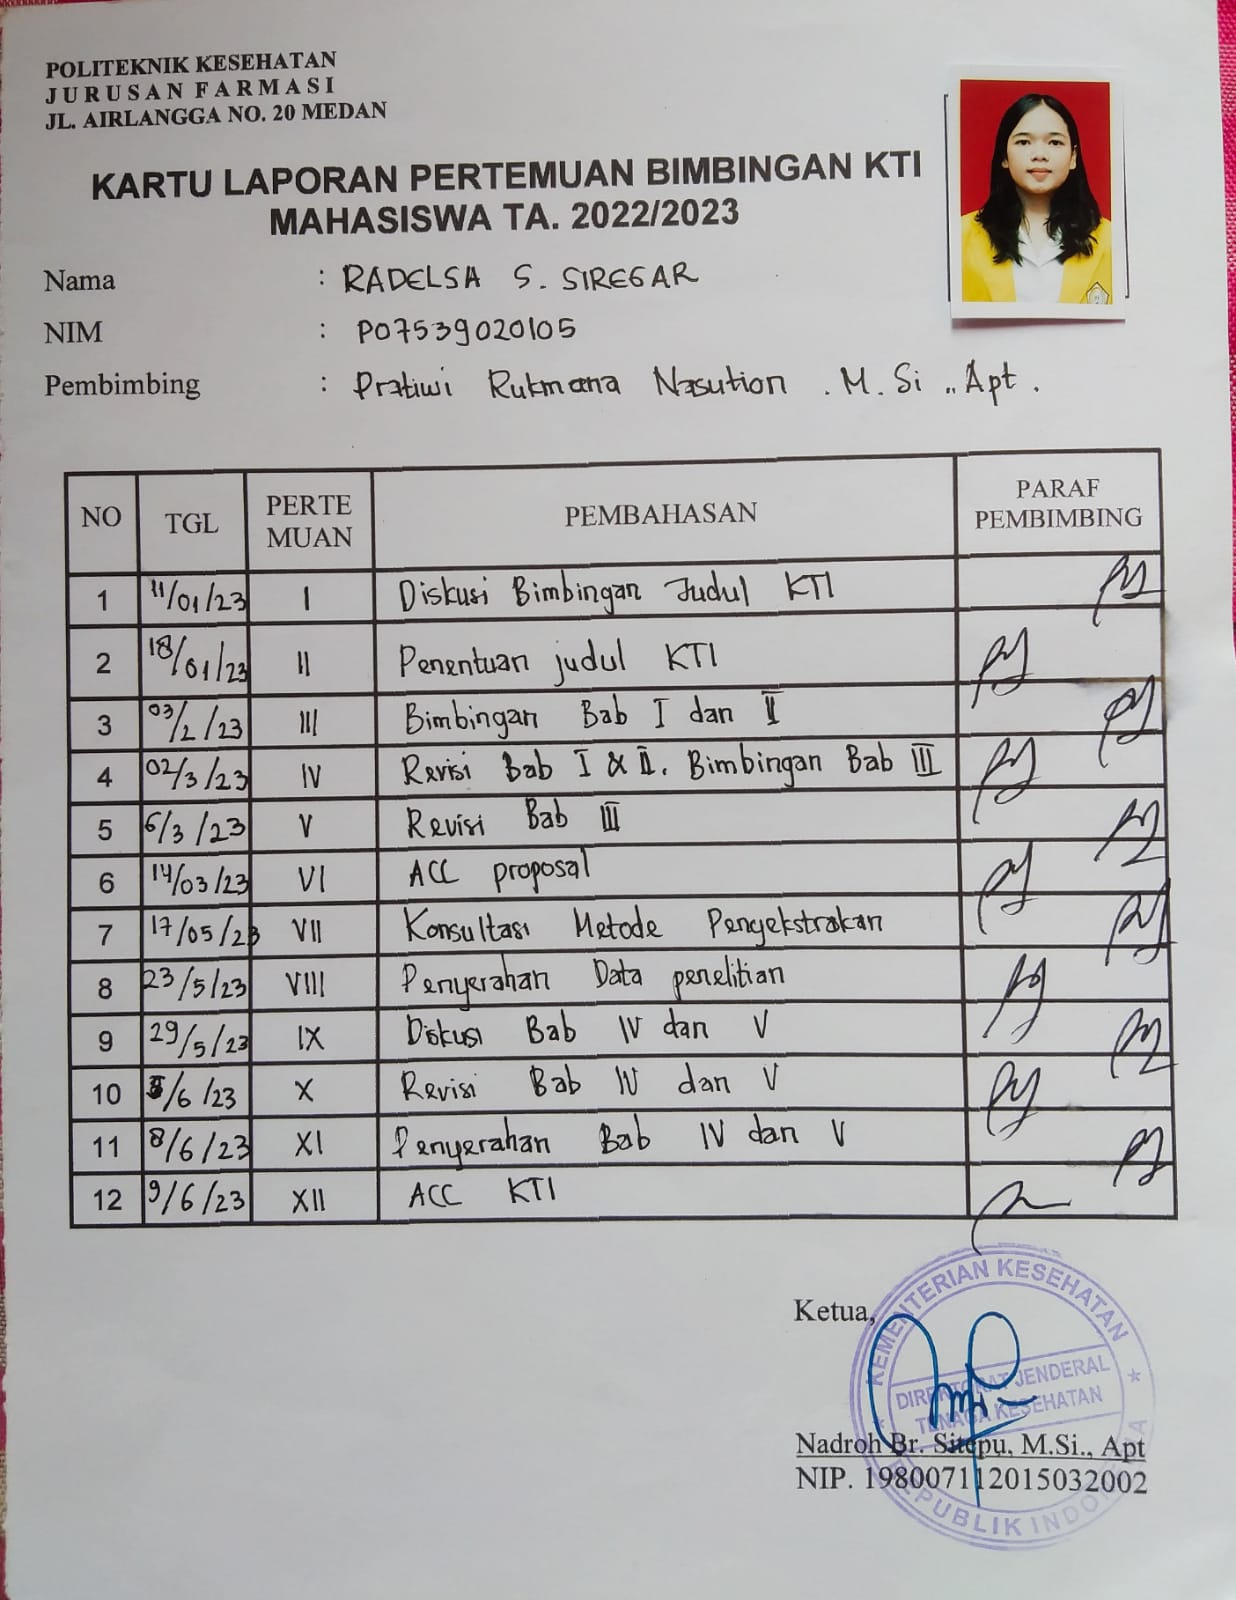 POLITEKNIK KESEHATAN
JURUSAN FARMASI
JL. AIRLANGGA NO. 20 MEDAN
KARTU LAPORAN PERTEMUAN BIMBINGAN KTI
MAHASISWA TA. 2022/2023
Nama : RADELSA S. SIREGAR
NIM : P07539020105
Pembimbing : Pratiwi Rukmana Nasution . M. Si ., Apt .
NO TGL PERTE MUAN PEMBAHASAN PARAF PEMBIMBING
1 11/01/23 I Diskusi Bimbingan Judul KTI
2 18/01/23 II Penentuan judul KTI
3 03/2/23 III Bimbingan Bab I dan II
4 02/3/23 IV Revisi Bab I & II. Bimbingan Bab III
5 6/3/23 V Revisi Bab III
6 14/03/23 VI ACC proposal
7 17/05/23 VII Konsultasi Metode Pengekstrakan
8 23/5/23 VIII Penyerahan Data penelitian
9 29/5/23 IX Diskusi Bab IV dan V
10 /6/23 X Revisi Bab IV dan V
11 8/6/23 XI Penyerahan Bab IV dan V
12 9/6/23 XII ACC KTI
Ketua,
KEMENTERIAN KESEHATAN
DIREKTORAT JENDERAL
TENAGA KESEHATAN
REPUBLIK INDONESIA
Nadroh Br. Sitepu, M.Si., Apt
NIP. 198007112015032002